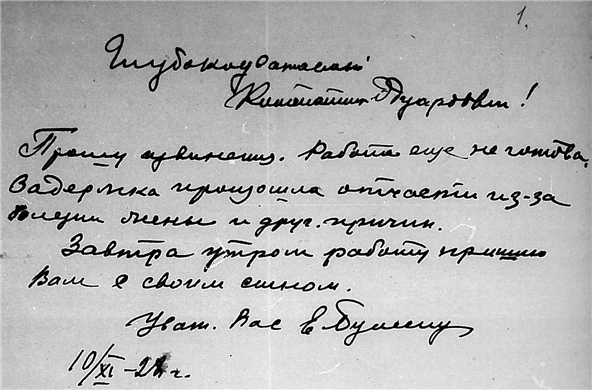 1.
Глубокоуважаемый
Константин Эдуардович!
Прошу извинения. Работа еще не готова.
Задержка произошла отчасти из-за
болезни жены и друг. причин.
Завтра утром работу пришлю
Вам с своим сыном.
Уваж. Вас Е.
10/XI - г.